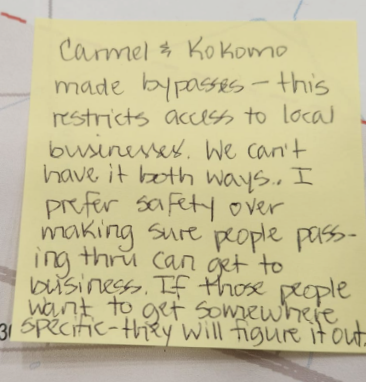 Carmel & Kokomo
made bypasses - this
restricts access to local
businesses. We can't
have it both ways.. I
prefer safety over
making sure people pass-
ing thru can get to
business. If those people
want to get somewhere
specific - they will figure it out.